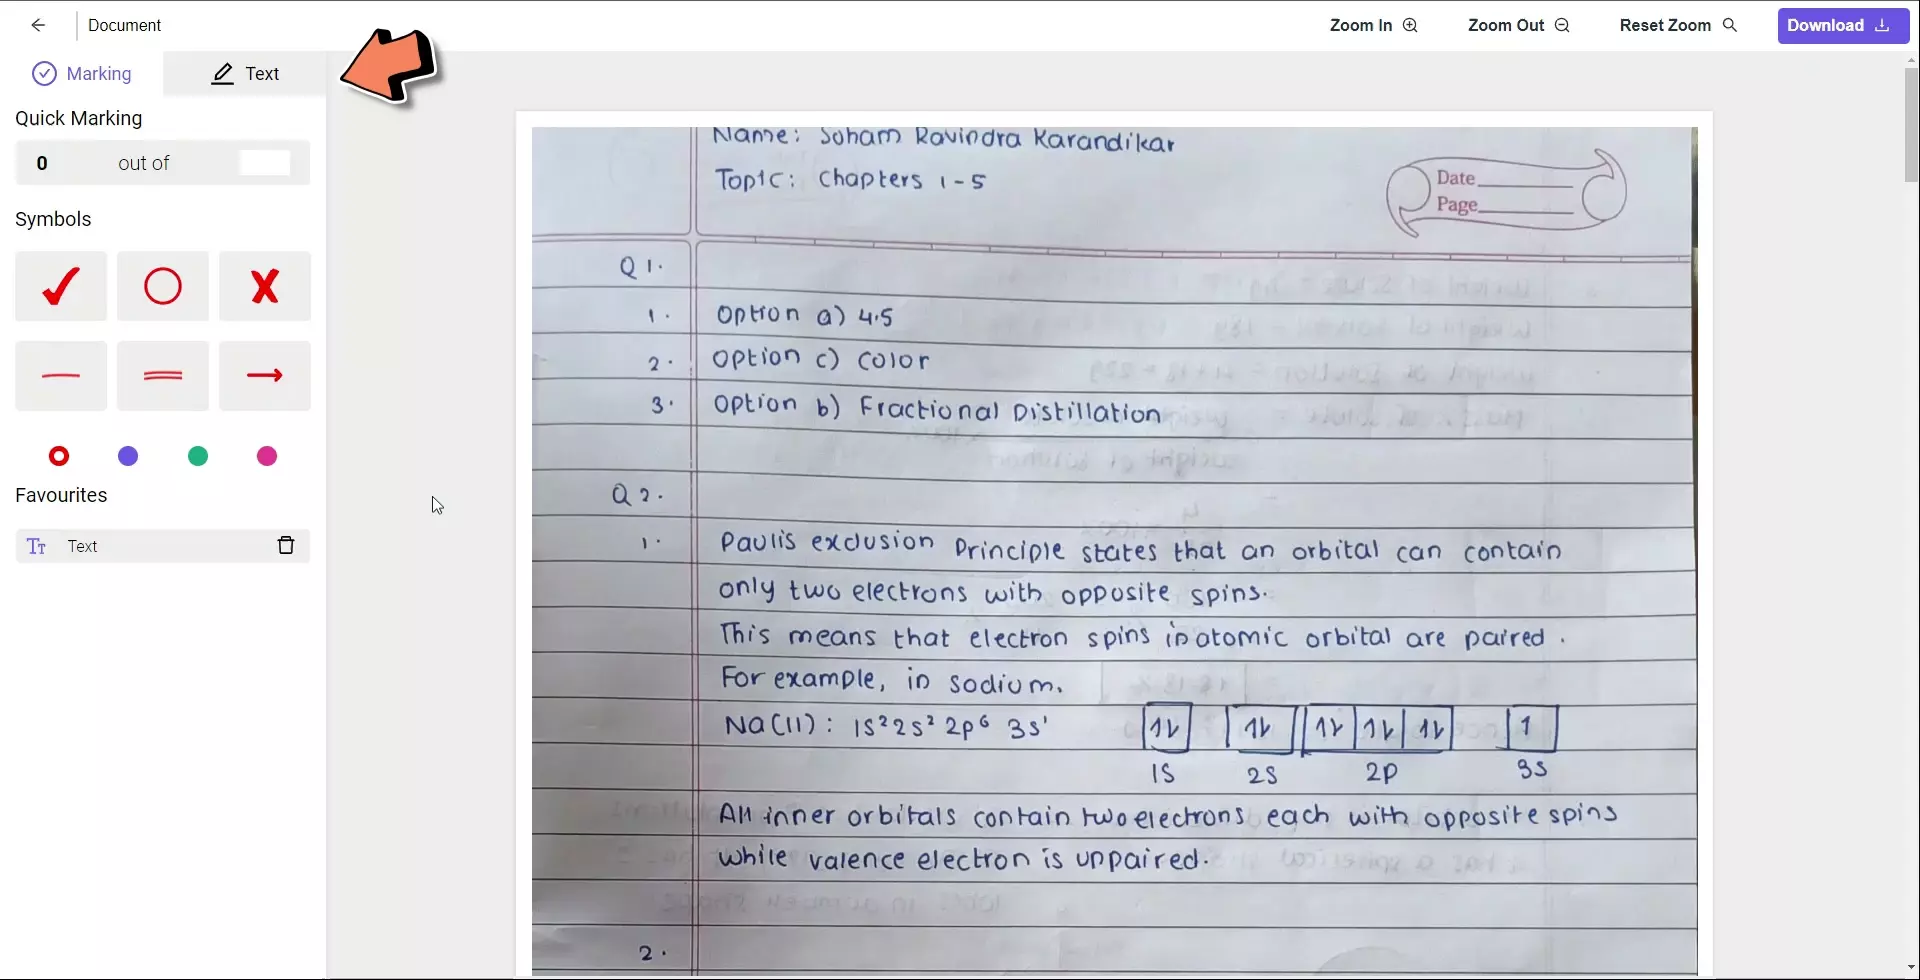 Document
Zoom In
Zoom Out
Reset Zoom
Download
Marking
Text
Quick Marking
0 out of
Symbols
Favourites
Text
Name: Soham Ravindra Karandikar
Topic: Chapters 1-5
Date
Page
Q1.
1. Option a) 4.5
2. Option c) Color
3. Option b) Fractional Distillation
Q2.
1. Paulis exclusion Principle states that an orbital can contain
only two electrons with opposite spins.
This means that electron spins in atomic orbital are paired.
For example, in sodium.
Na(11): 1s² 2s² 2p⁶ 3s¹ 1L 1L 1L 1L 1L 1
1S 2S 2P 3S
All inner orbitals contain two electrons each with opposite spins
while valence electron is unpaired.
2.